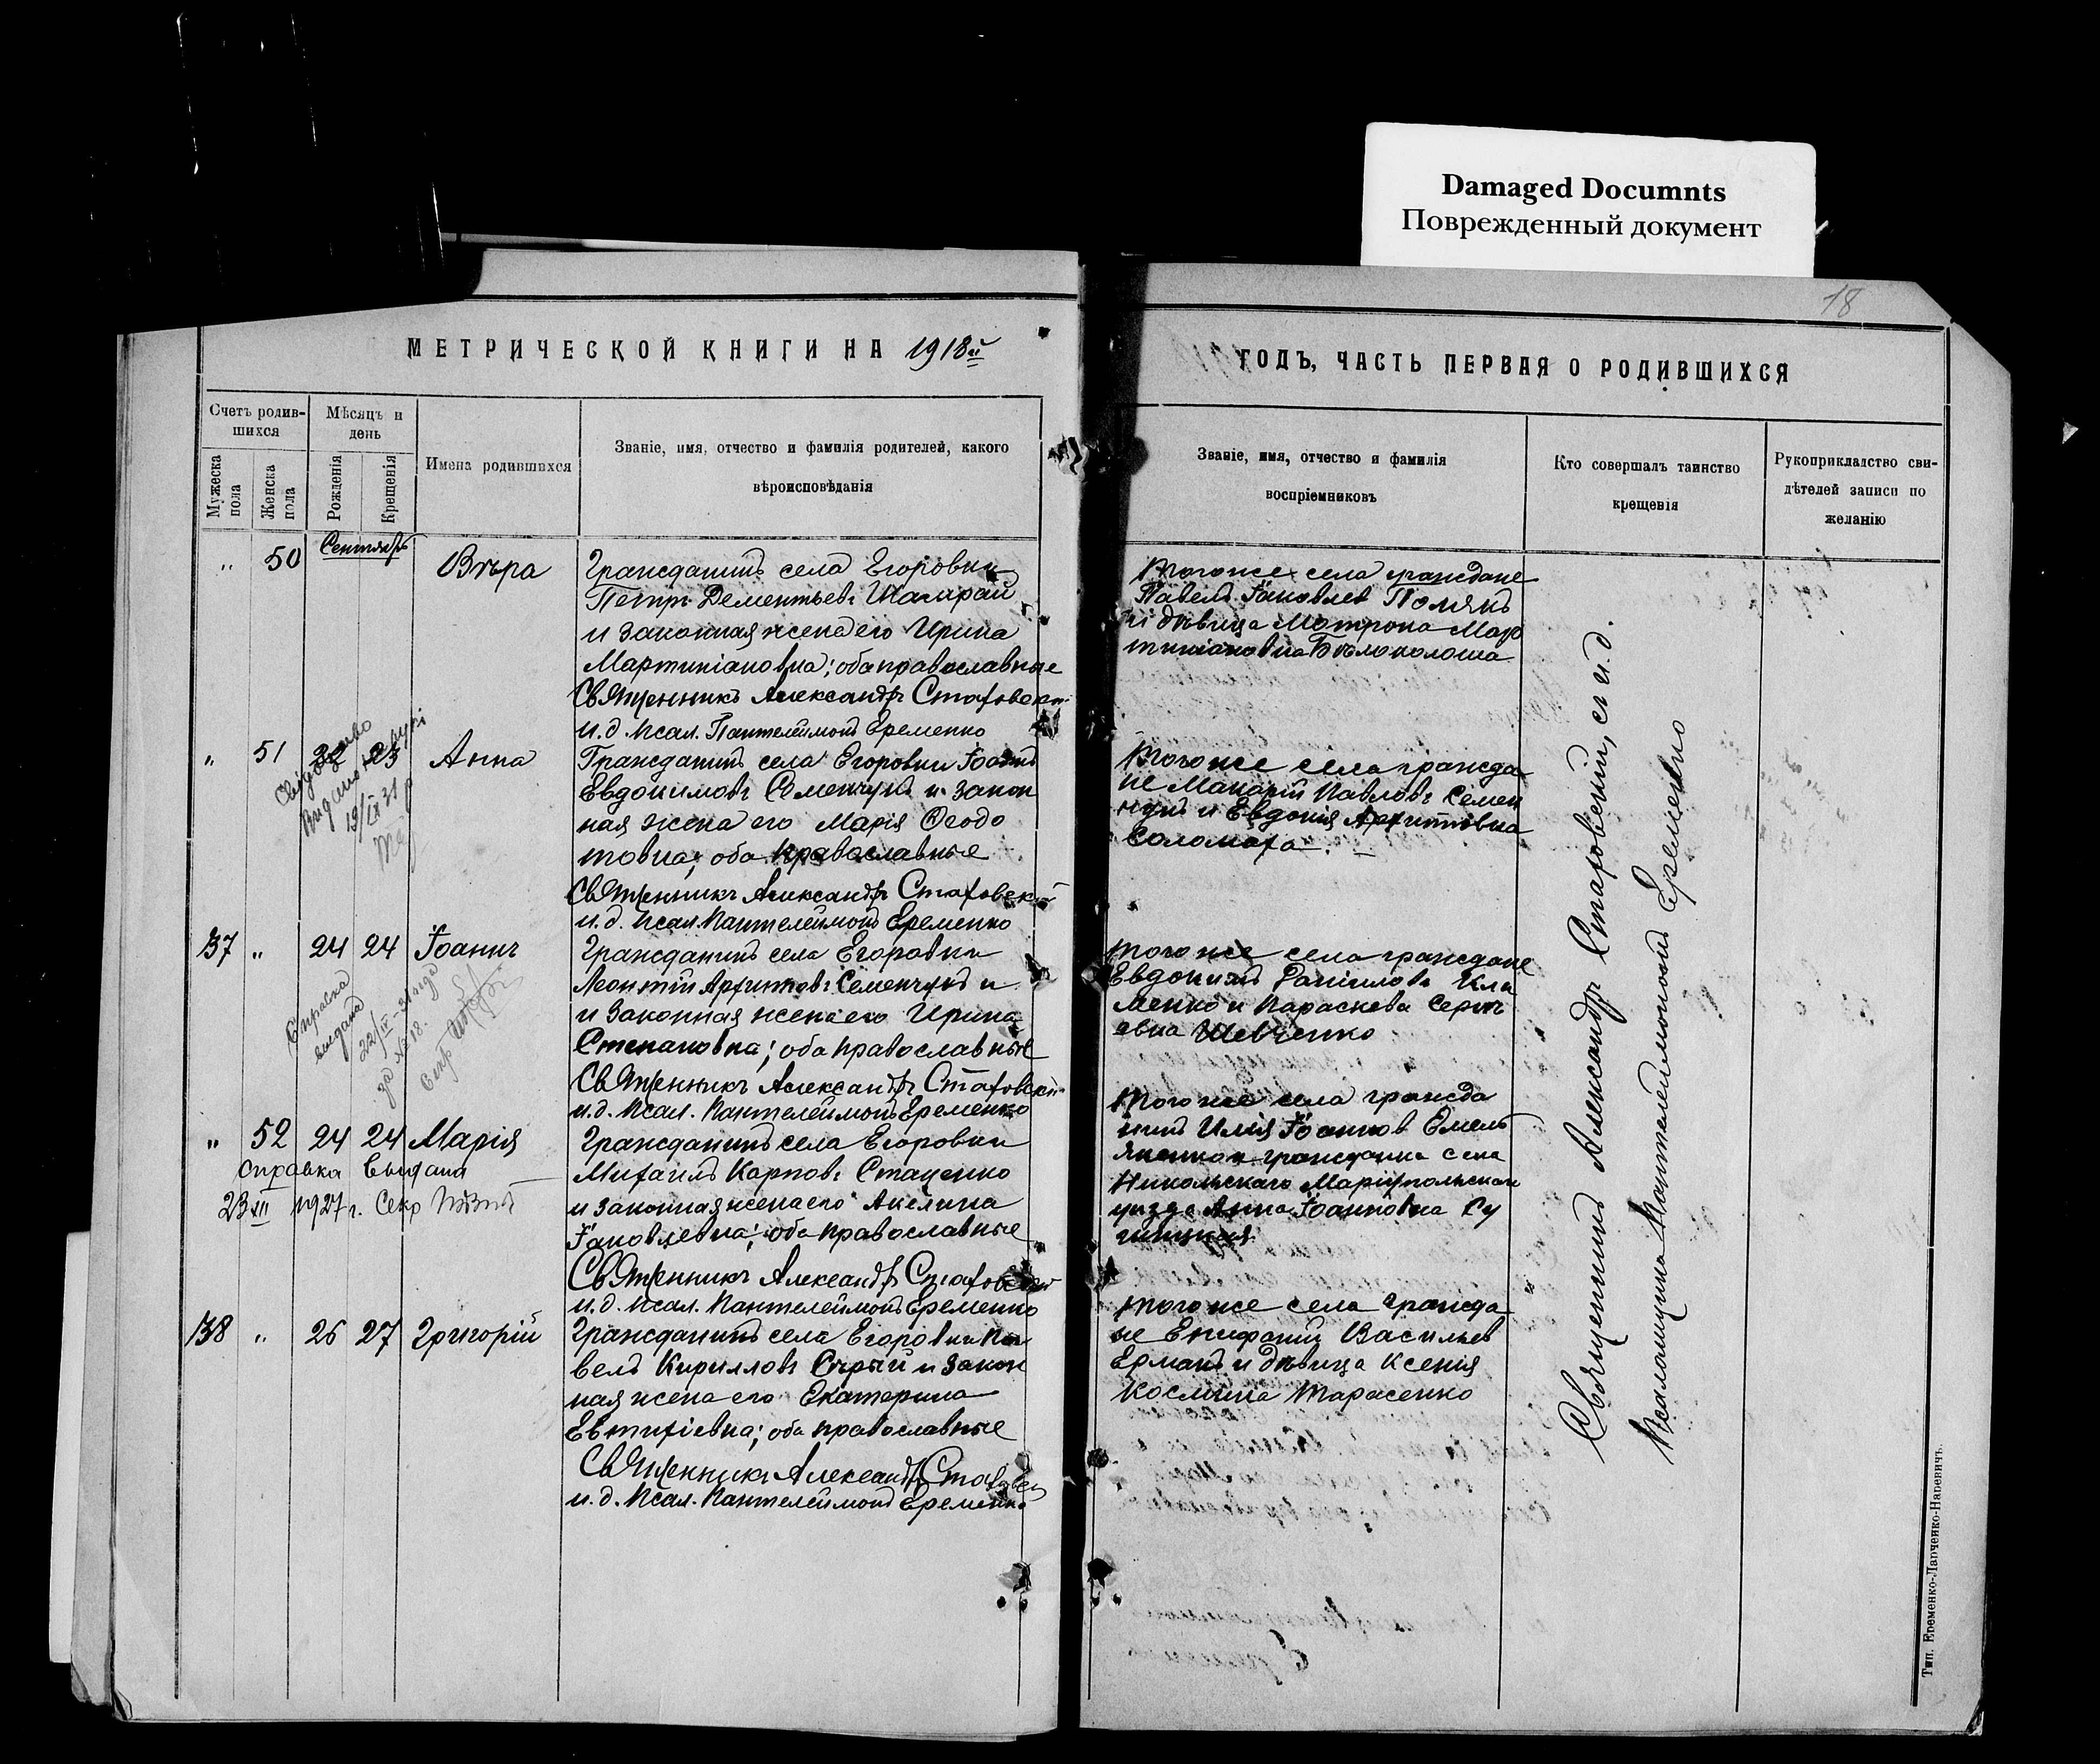 Damaged Documnts
Поврежденный документ
18
МЕТРИЧЕСКОЙ КНИГИ НА 1918й
ГОДЪ, ЧАСТЬ ПЕРВАЯ О РОДИВШИХСЯ
Счетъ родив-
шихся
Мужеска
пола
Женска
пола
Мѣсяцъ и
день
Рожденія
Крещенія
Имена родившихся
Званіе, имя, отчество и фамилія родителей, какого
вѣроисповѣданія
Званіе, имя, отчество и фамилія
воспріемниковъ
Кто совершалъ таинство
крещенія
Рукоприкладство сви-
дѣтелей записи по
желанію
Сентябрь
" 50 Вѣра
Гражданинъ села Егоровки
Петръ Дементьевъ Шагарай
и законная жена его Ирина
Мартиніановна; оба православные
Священникъ Александръ Стаховскій
и.д. Псал. Пантелеймонъ Еременко
Того же села граждане
Павелъ Іаковлев Полякъ
и дѣвица Матрона Мар
тиніановна Бѣлоколоша
" 51 22 23 Анна
видано
19/IX 31
Гражданинъ села Егоровки Іоаннъ
Евдокимовъ Семенчукъ и закон
ная жена его Марія Ѳеодо
товна; оба православные
Священникъ Александръ Стаховскій
и.д. Псал. Пантелеймонъ Еременко
Того же села гражда
не Макарій Павловъ Семен
чукъ и Евдокия Архиповна
Соломаха
37 " 24 24 Іоаннъ
Справка
выдана
22/IV - 31 года
за № 18.
Секр
Гражданинъ села Егоровки
Леонтій Архиповъ Семенчукъ и
и законная жена его Ирина
Степановна; оба православные
Священникъ Александръ Стаховскій
и.д. Псал. Пантелеймонъ Еременко
Того же села граждане
Евдокимъ Даніиловъ Кли
менко и Параскева Серги
евна Шевченко
" 52 24 24 Марія
Справка выдана
23 XII 1927 г. Секр
Гражданинъ села Егоровки
Михаилъ Карповъ Стаценко
и законная жена его Акелина
Іаковлевна; оба православные
Священникъ Александръ Стаховскій
и.д. Псал. Пантелеймонъ Еременко
Того же села гражда
нинъ Илія Іоаннов Емель
яненко и гражданка села
Никольскаго Маріупольскаго
уѣзда Анна Іоанновна Су
38 " 26 27 Григорій
Гражданинъ села Егоровки Па
велъ Кирилловъ Сѣрый и закон
ная жена его Екатерина
Евтихіевна; оба православные
Священникъ Александръ Стаховскій
и.д. Псал. Пантелеймонъ Еременко
Того же села гражда
не Епифаній Васильев
Ермакъ и дѣвица Ксенія
Космина Тарасенко
Священникъ Александръ Стаховскій, съ и.д.
Псаломщика Пантелеймономъ Еременко
Тип. Еременко-Ларченко-Наревичъ.